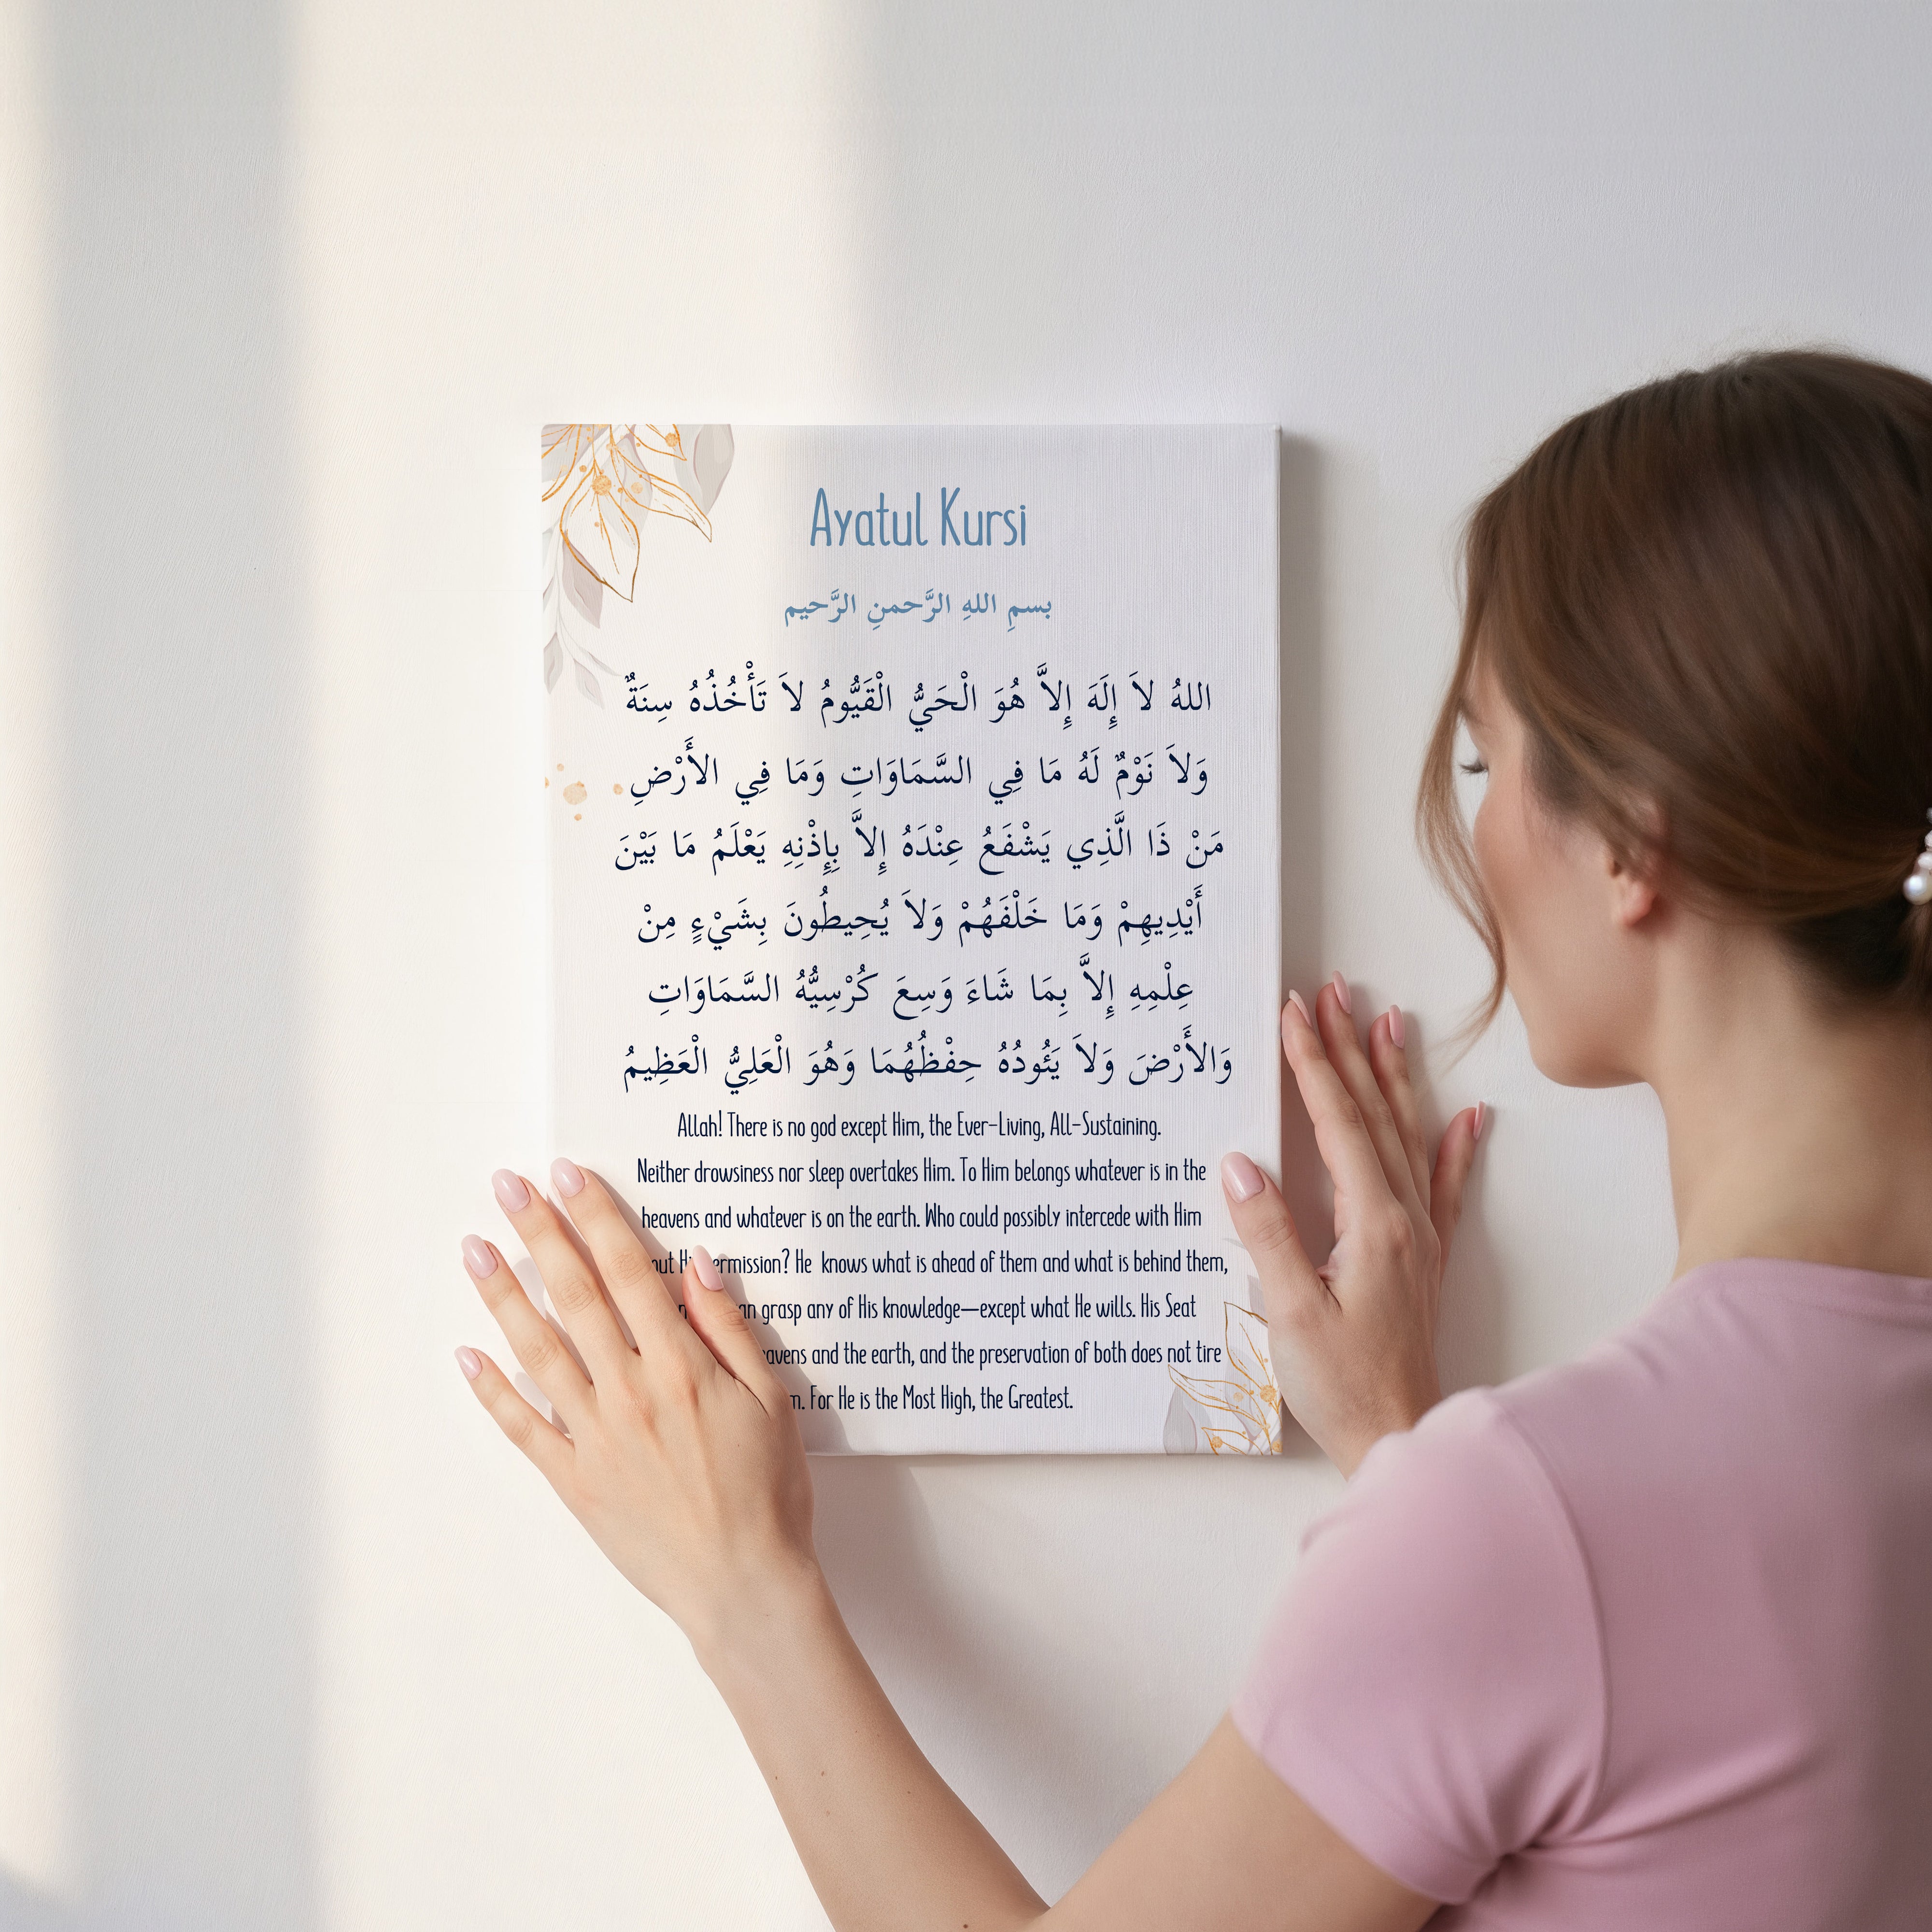 Ayatul Kursi
بسمِ اللهِ الرَّحمنِ الرَّحيم
اللهُ لاَ إِلَهَ إِلاَّ هُوَ الْحَيُّ الْقَيُّومُ لاَ تَأْخُذُهُ سِنَةٌ
وَلاَ نَوْمٌ لَهُ مَا فِي السَّمَاوَاتِ وَمَا فِي الأَرْضِ
مَنْ ذَا الَّذِي يَشْفَعُ عِنْدَهُ إِلاَّ بِإِذْنِهِ يَعْلَمُ مَا بَيْنَ
أَيْدِيهِمْ وَمَا خَلْفَهُمْ وَلاَ يُحِيطُونَ بِشَيْءٍ مِنْ
عِلْمِهِ إِلاَّ بِمَا شَاءَ وَسِعَ كُرْسِيُّهُ السَّمَاوَاتِ
وَالأَرْضَ وَلاَ يَئُودُهُ حِفْظُهُمَا وَهُوَ الْعَلِيُّ الْعَظِيمُ
Allah! There is no god except Him, the Ever-Living, All-Sustaining.
Neither drowsiness nor sleep overtakes Him. To Him belongs whatever is in the
heavens and whatever is on the earth. Who could possibly intercede with Him
He knows what is ahead of them and what is behind them,
grasp any of His knowledge—except what He wills. His Seat
and the earth, and the preservation of both does not tire
For He is the Most High, the Greatest.